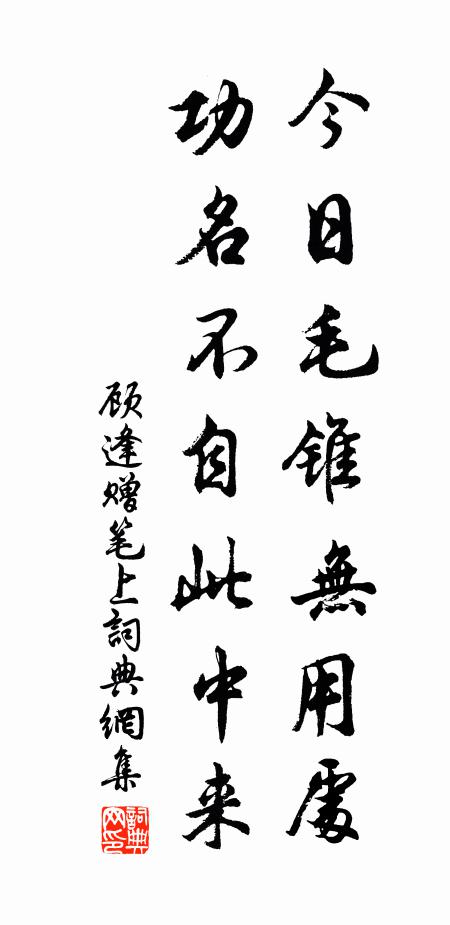 今日毛錐無用處
功名不自此中来
顾逢赠笔上詞典網集
詞典網印